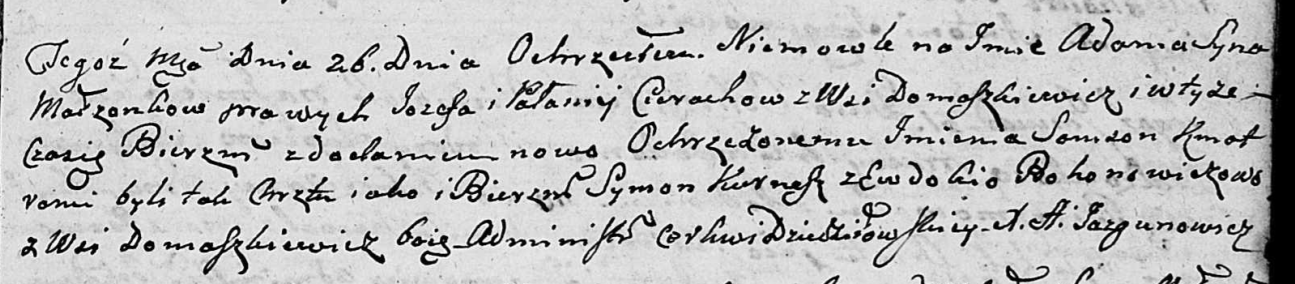 Tegoż Mca Dnia 26. Dnia Ochrzciłem. Niemowle na Imie Adama Syna
Małzonkow prawych Jozefa i Pałanij Cierachow z Wsi Domaszkiewicz i w tymże
Czasie Bierzm z dodaniem nowo Ochrzczonemu Imienia Samson Kmot
rami byli tak Chrztu iako i Bierzm Symon Kurnesz z Ewdokio Bohonowiczowo
z Wsi Domaszkiewicz Administr Cerkwi Dziedziłowskiey A. Jazgunowicz